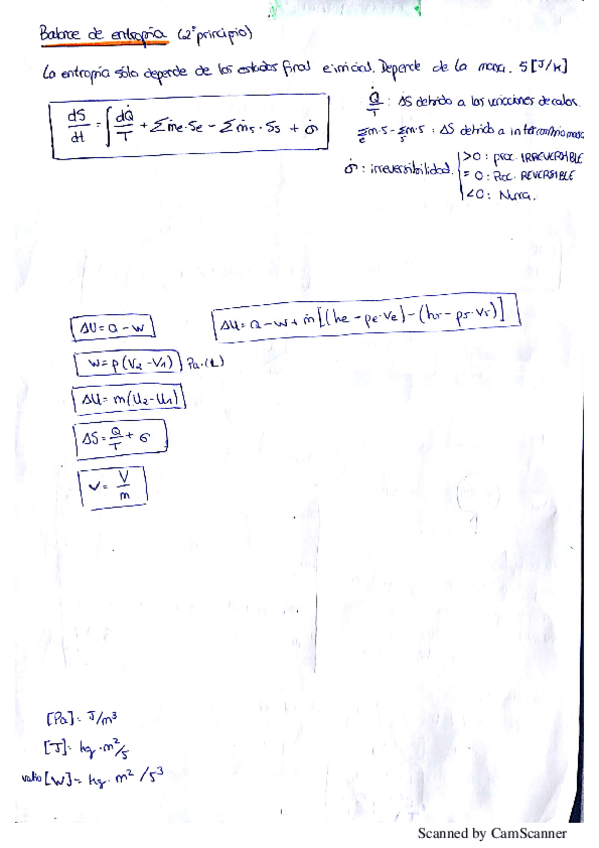 Balance de entropía (2º principio)
La entropía sólo depende de los estados final e inicial. Depende de la masa. S[J/K]
dS/dt = ∫ dQ̇/T + Σṁe·Se − Σṁs·Ss + σ̇
Q̇/T : ΔS debido a las variaciones de calor.
Σe m·s − Σs m·s : ΔS debido a intercambio masa
σ̇ : irreversibilidad.
>0 : proc. IRREVERSIBLE
= 0 : Proc. REVERSIBLE
<0 : Nunca.
ΔU = Q − W
ΔU = Q − W + ṁ[(he − pe·ve) − (hs − ps·vs)]
W = p(V2 − V1) Pa·(L)
ΔU = m(U2 − U1)
ΔS = Q/T + σ
v = V/m
[Pa] : J/m³
[J] : kg·m²/s
vatio [W] = kg·m²/s³
Scanned by CamScanner